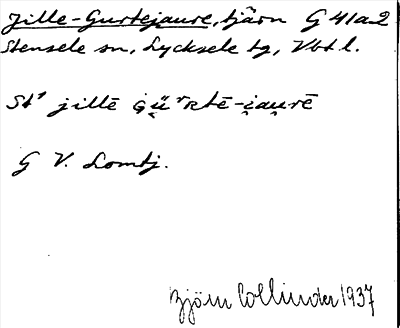 Jille-Gurtejaure, tjärn G 41a2
Stensele sn, Lycksele tg, Vbt l.
St' jillē
G V. Lomtj.
Björn Collinder 1937